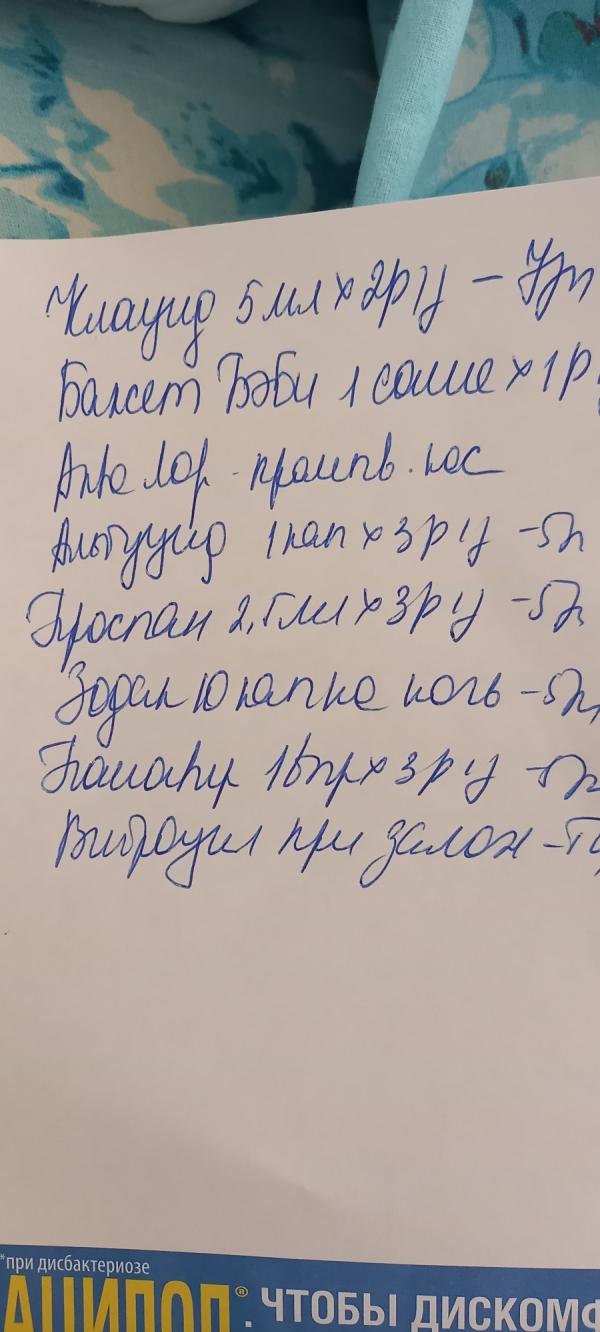 Клацид 5 мл х 2р д – 7дн
Баксет Бэби 1 саше х 1р
Аква Лор - промыв. нос
Альбуцид 1 кап х 3р д – 5д
Проспан 2,5 мл х 3р д – 5д
Зодак 10 кап на ночь – 5д
1 впр х 3р д – 5д
Виброцил при залож –
*при дисбактериозе
АЦИПОЛ®. ЧТОБЫ ДИСКОМФ